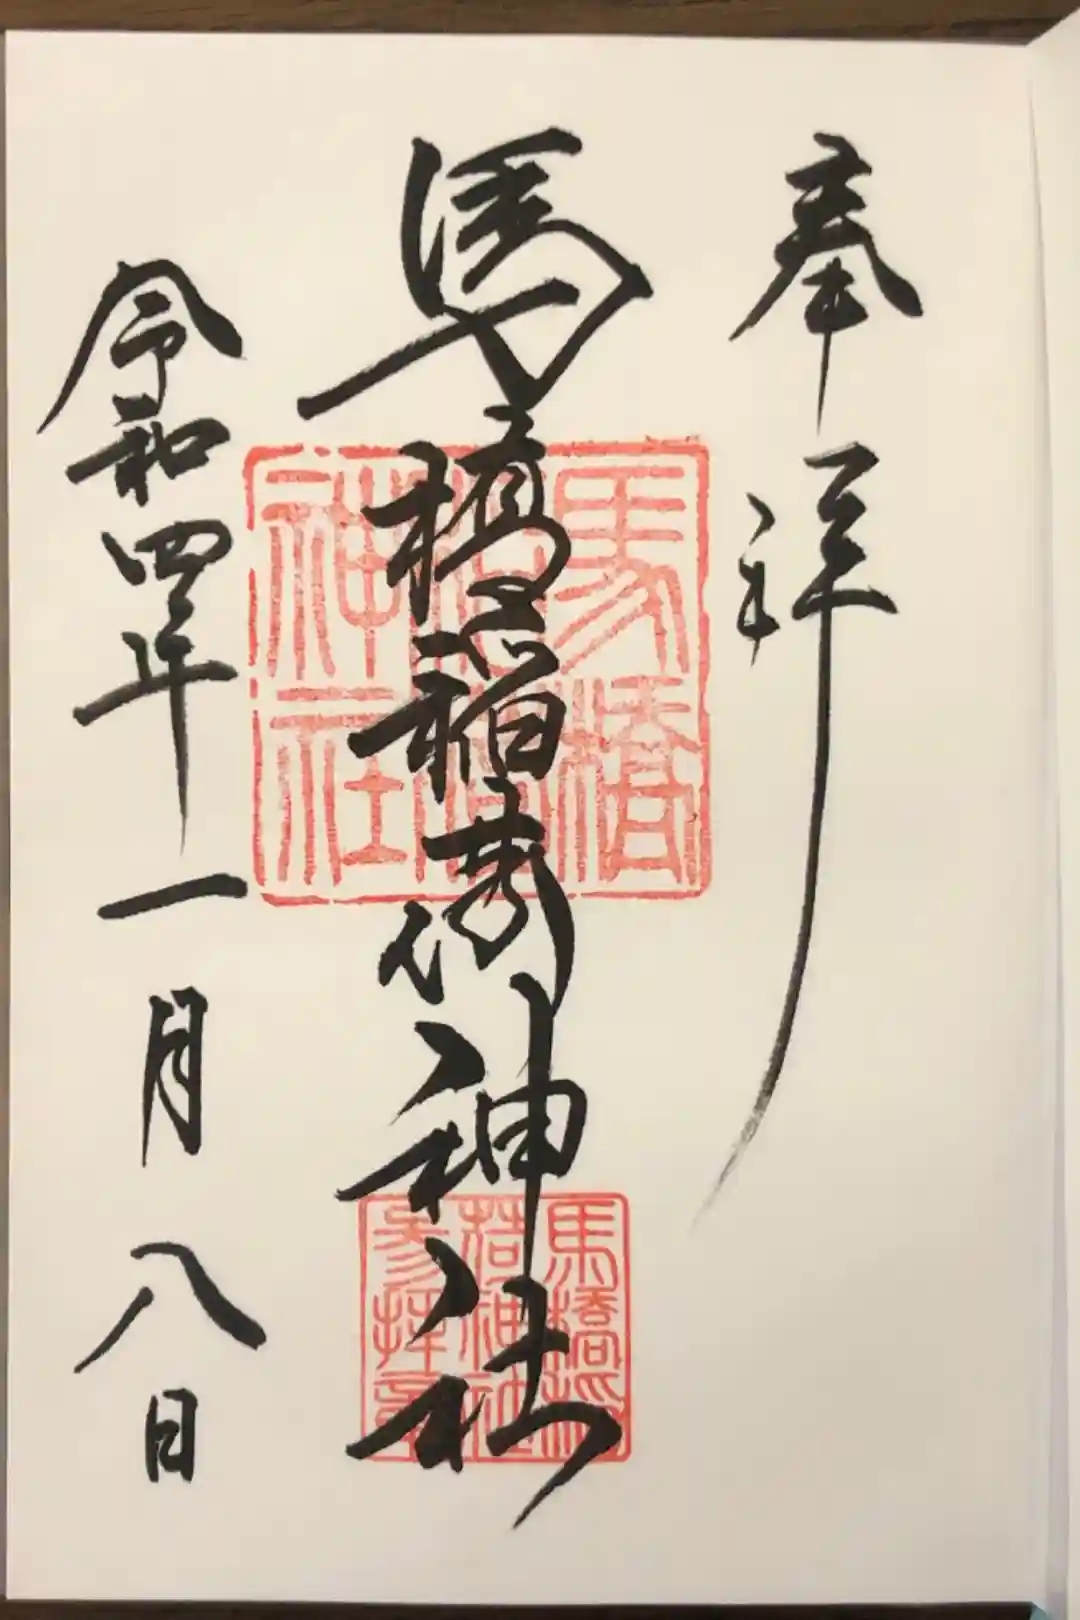 奉拝
馬橋稲荷神社
令和四年一月八日
馬橋稲荷神社
馬橋稲荷神社参拝章